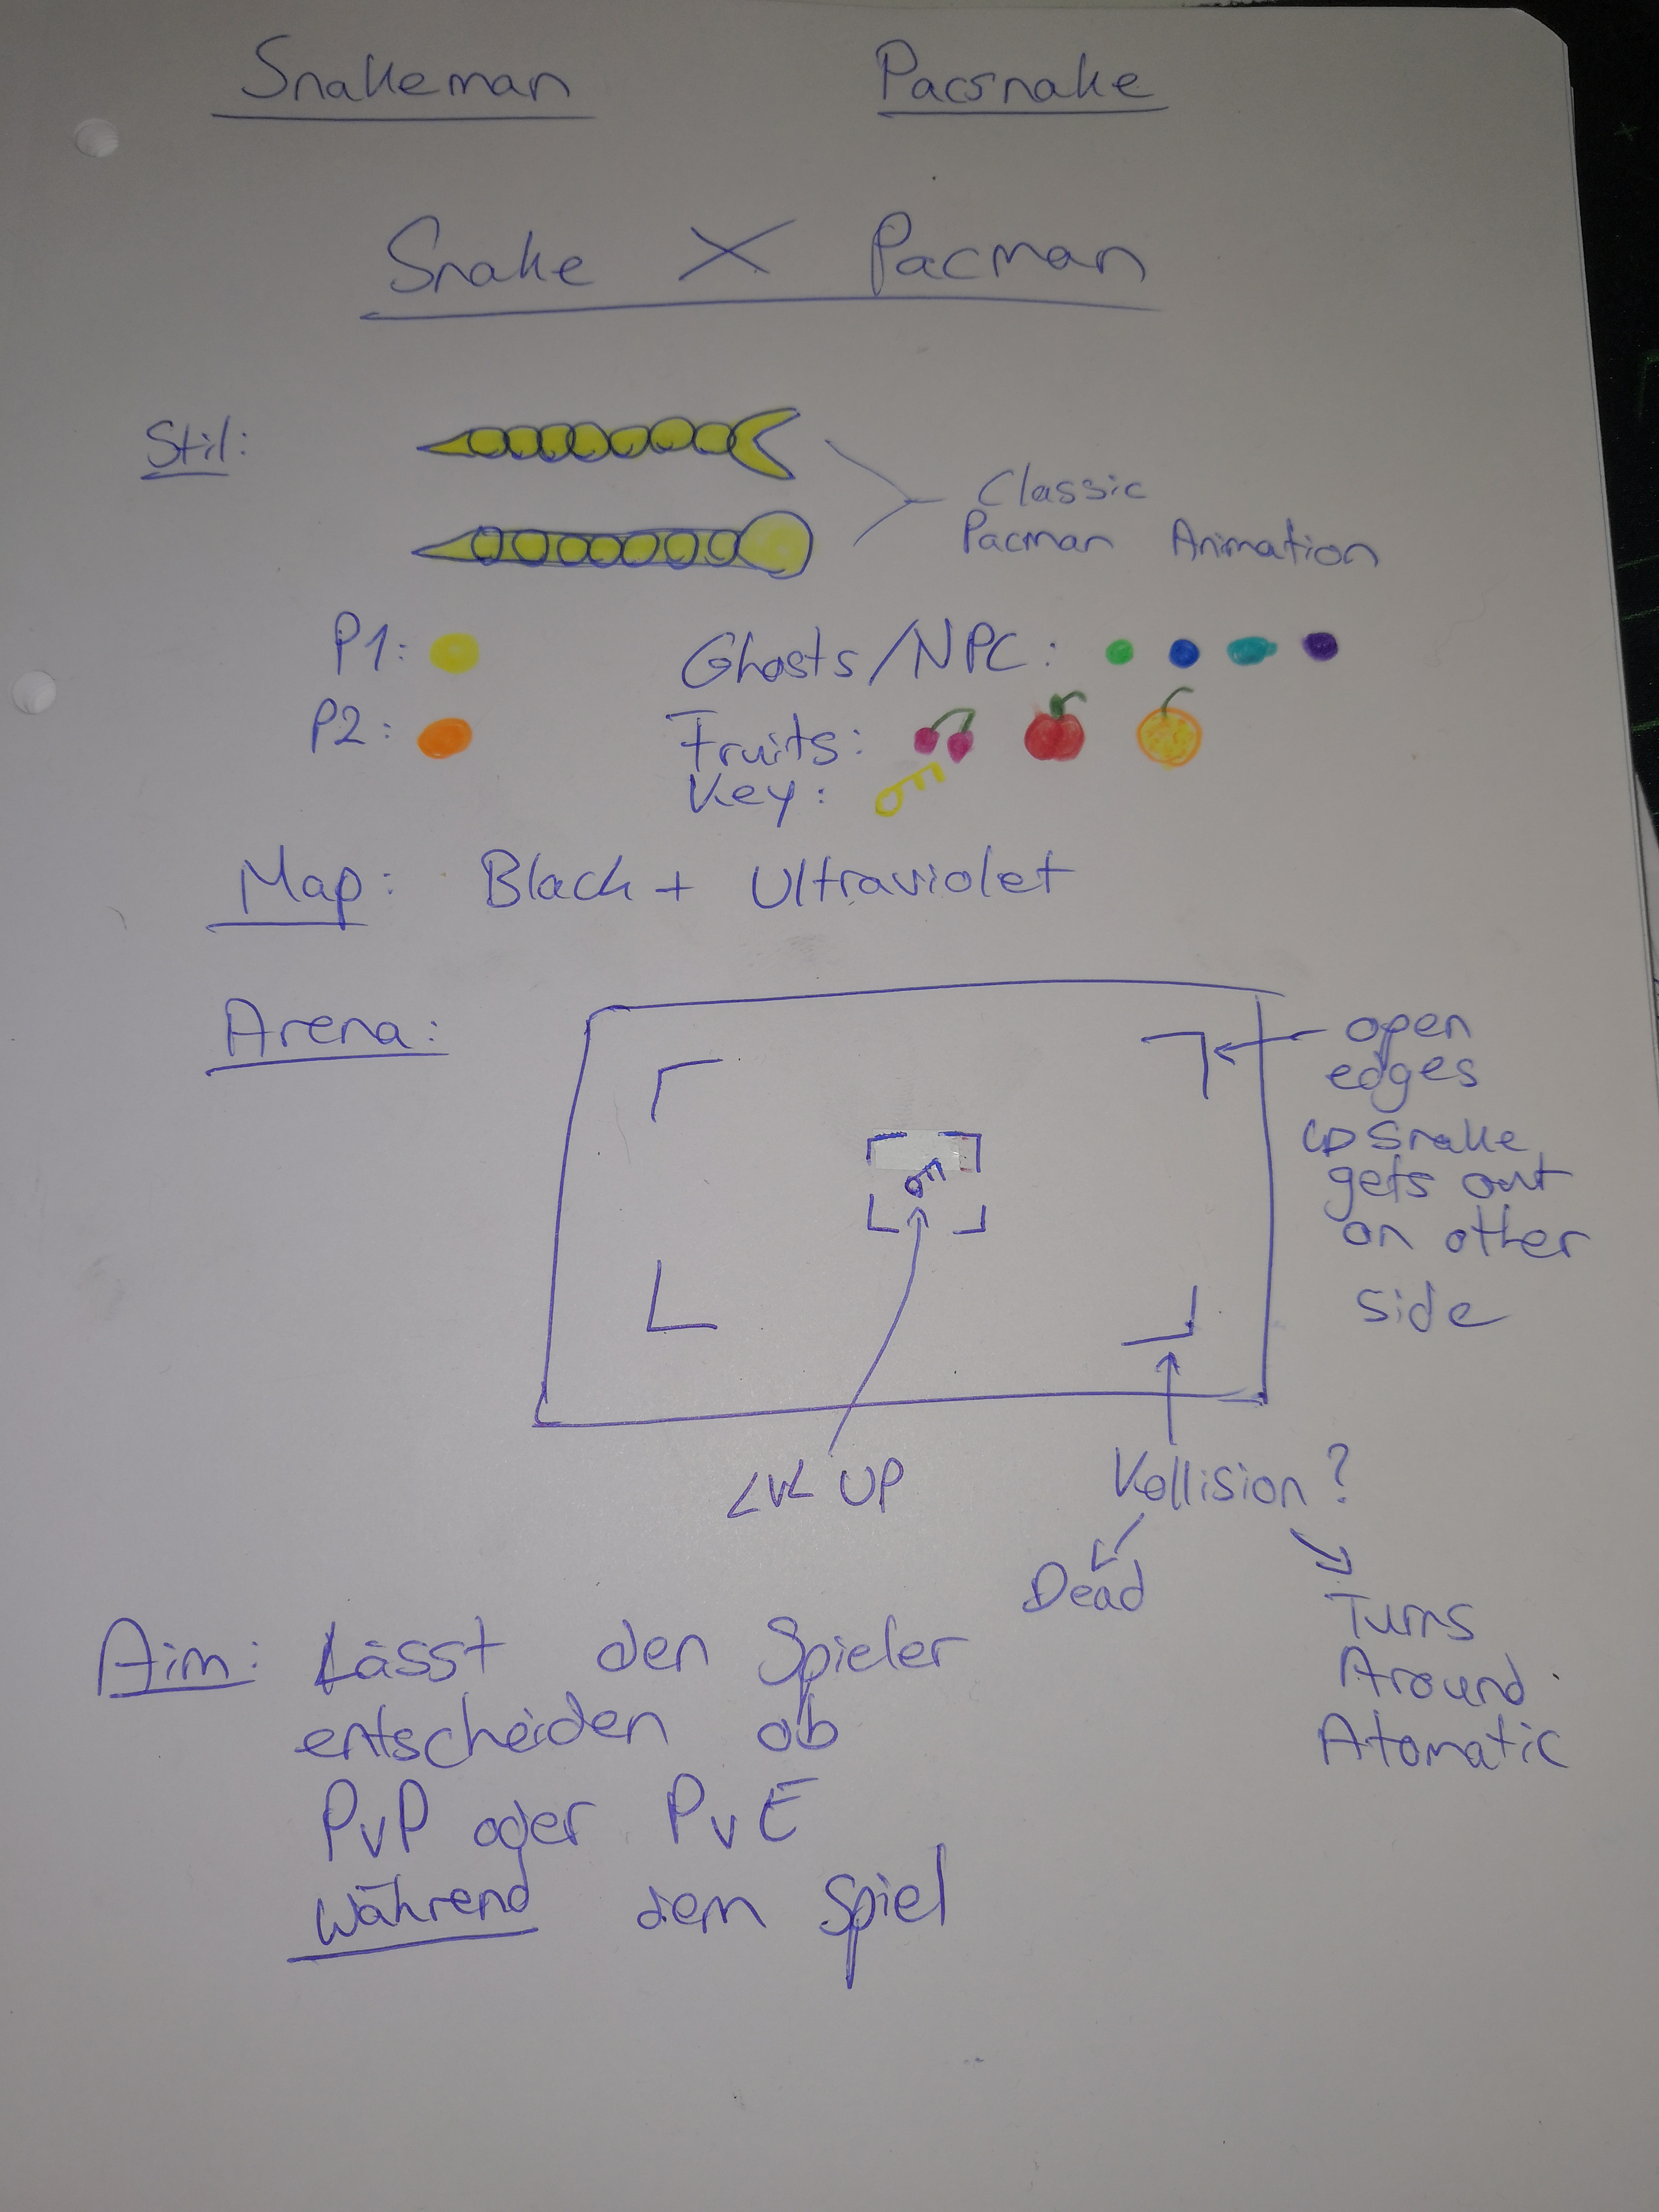 Snakeman
Pacsnake
Snake X Pacman
Stil:
Classic
Pacman Animation
P1:
Ghosts/NPC:
P2:
Fruits:
Key:
Map: Black + Ultraviolet
Arena:
open
edges
↳ Snake
gets out
on other
side
LVL UP
Kollision?
Dead
Turns
Around
Atomatic
Aim: Lässt den Spieler
entscheiden ob
PvP oder PvE
während dem Spiel